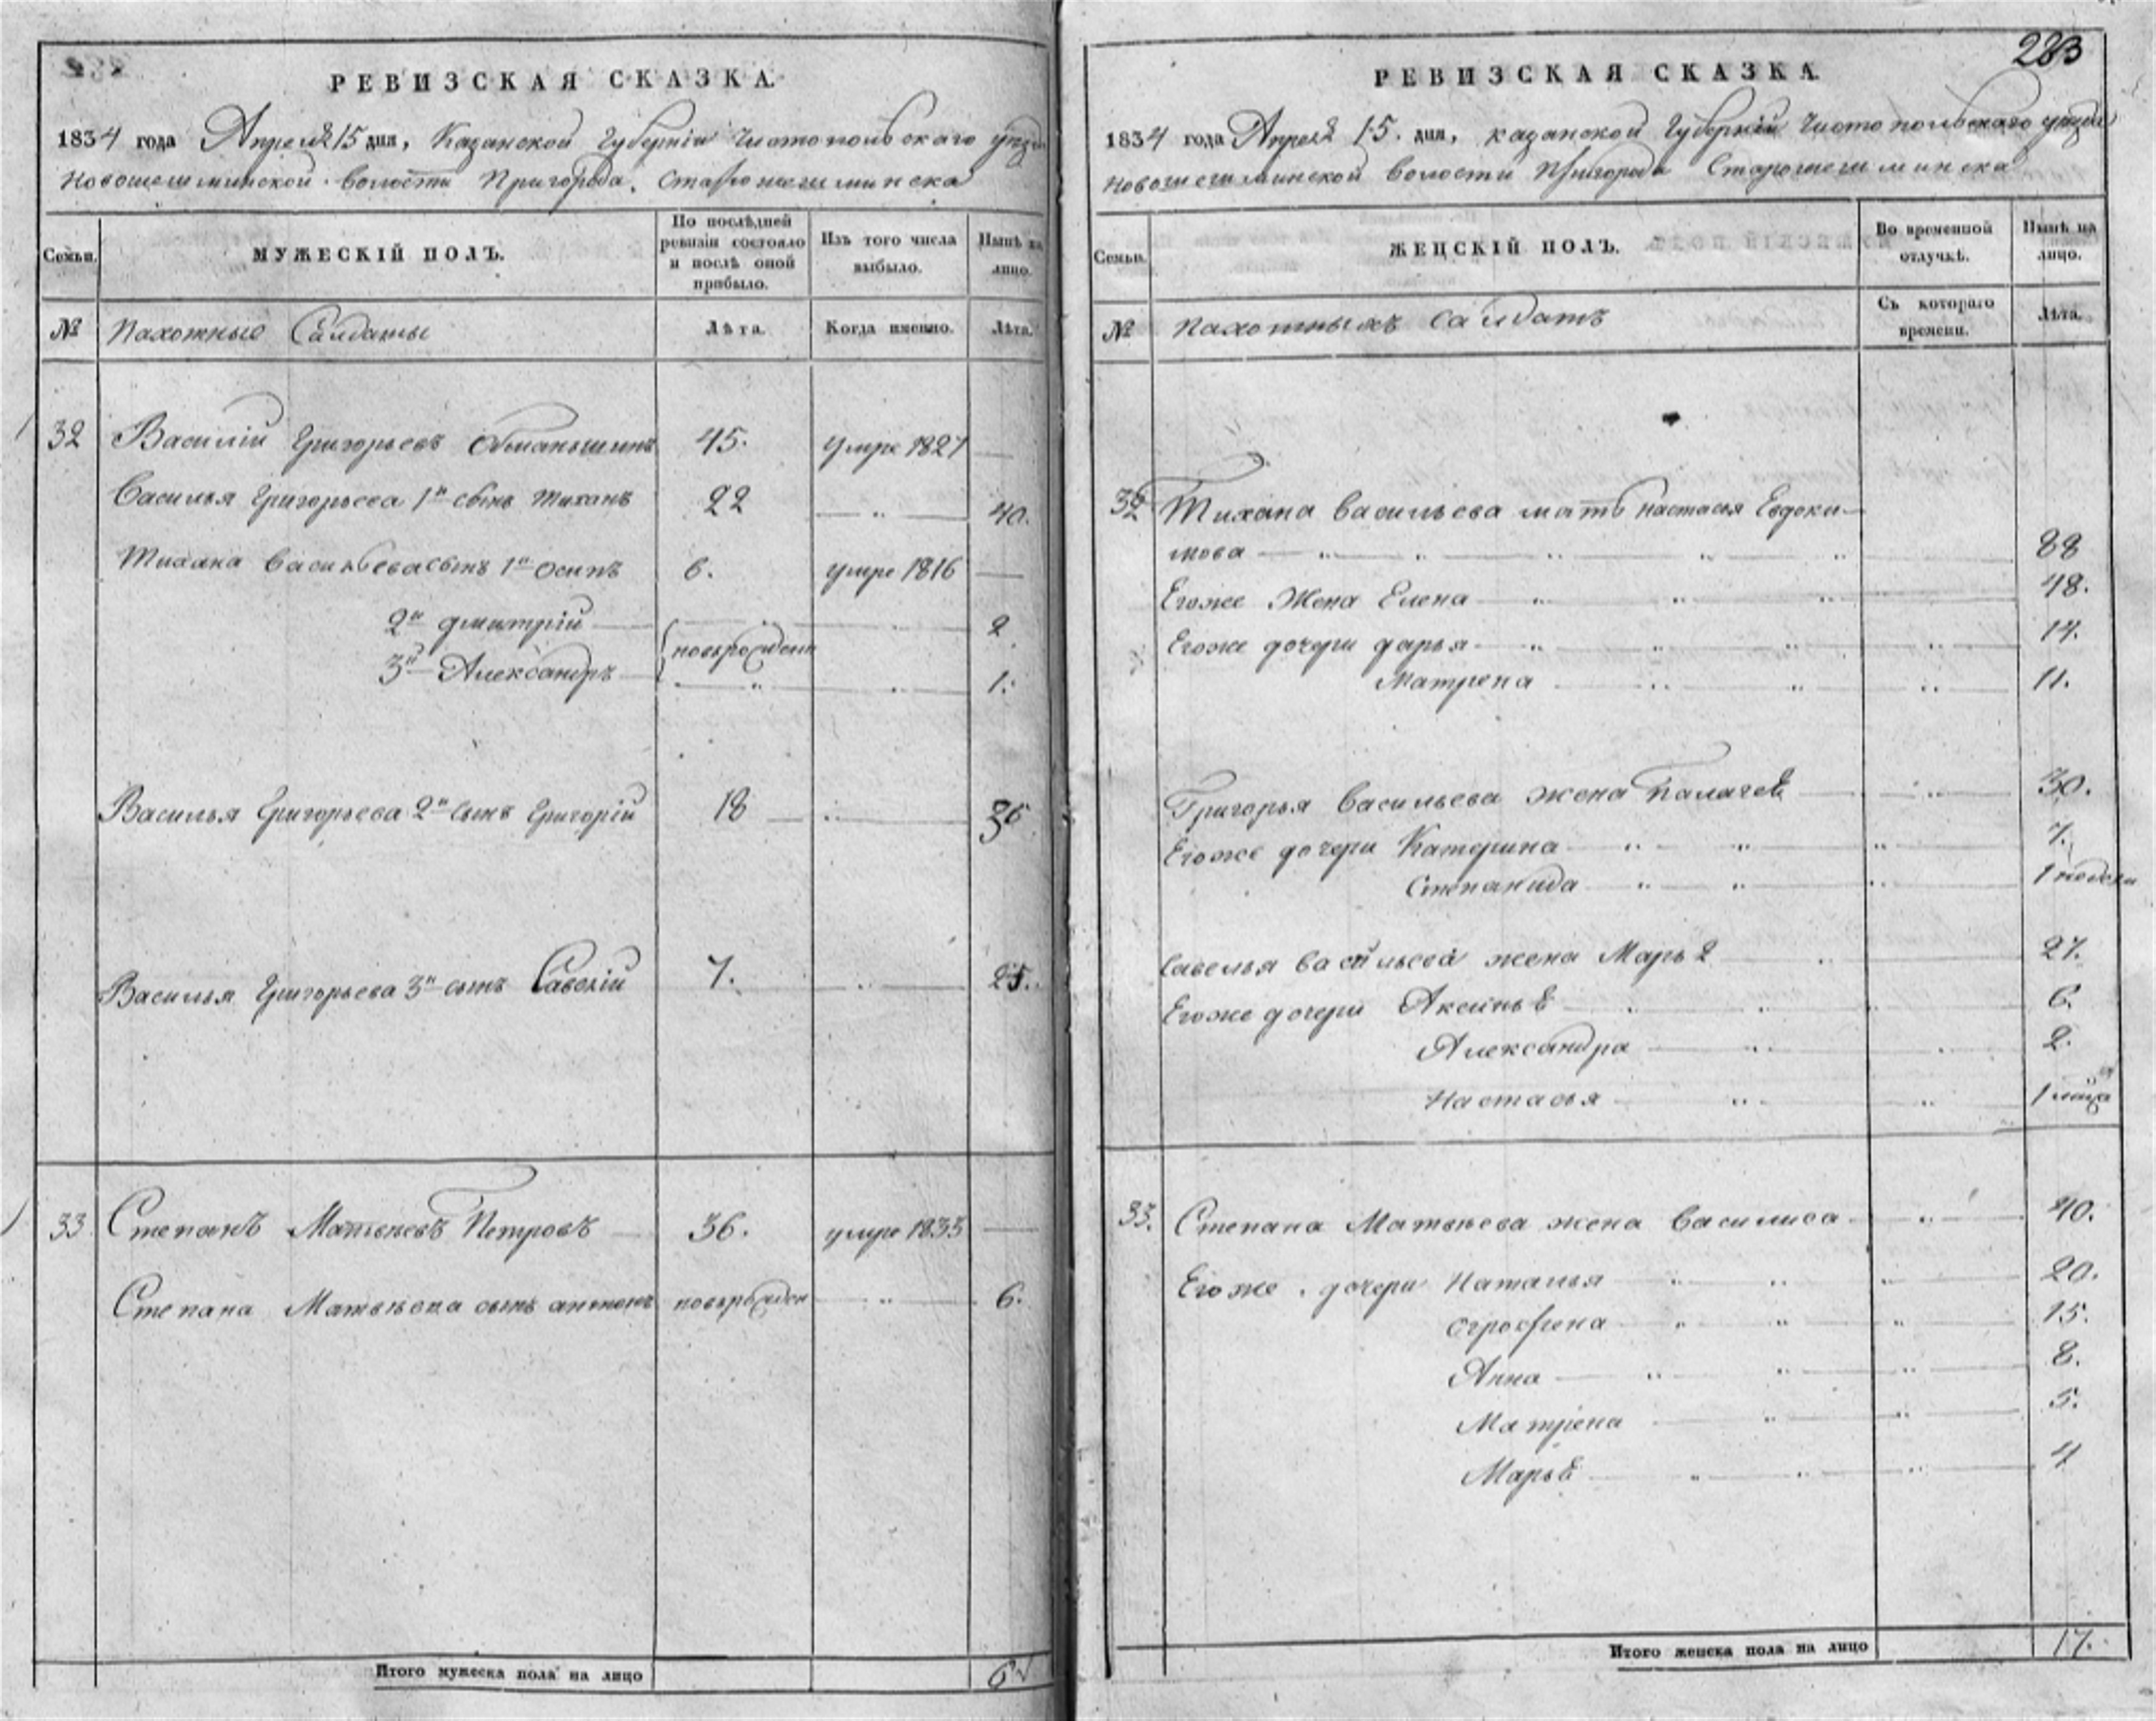 РЕВИЗСКАЯ СКАЗКА.
1834 года Апреля 15 дня, Казанской Губерніи Чистопольскаго уезда
Новошешминской волости Пригорода Старошешминска
Семьи.
МУЖЕСКІЙ ПОЛЪ.
По послѣдней ревизіи состояло и послѣ оной прибыло.
Изъ того числа выбыло.
Нынѣ на лицо.
№ Пахотные Салдаты Лѣта. Когда именно. Лѣта.
32 Василій Григорьевъ 45. умре 1827
Василья Григорьева 1й сынъ Тиханъ 22 40.
Тихана Васильева сынъ 1й Осипъ 6. умре 1816
2й дмитрій 2
новорожден
3й Александръ 1.
Василья Григорьева 2й сынъ Григорій 18 36
Василья Григорьева 3й сынъ Савелій 7. 25.
33 Степанъ Матвѣевъ Петровъ 36. умре 1833
Степана Матвѣева сынъ антонъ новорожден 6.
Итого мужеска пола на лицо 6
283
РЕВИЗСКАЯ СКАЗКА.
1834 года Апреля 15. дня, казанской Губерніи Чистопольскаго уезда
Новошешминской волости Пригорода Старошешминска
Семьи.
ЖЕНСКІЙ ПОЛЪ.
Во временной отлучкѣ.
Нынѣ на лицо.
№ Пахотныхъ Салдатъ Съ котораго времени. Лѣта.
32 Тихана Васильева мать настасья Евдоки-
мова 88
Егоже Жена Елена 48.
Егоже дочери дарья 14.
Матрена 11.
Григорья Васильева жена Палагея 30.
Егоже дочери Катерина 7.
Степанида 1 недели
Савелья Васильева жена Марья 27.
Егоже дочери Аксинья 6.
Александра 2.
Настасья 1
33. Степана Матвѣева жена Василиса 40.
Егоже дочери Наталья 20.
огрофена 15.
Анна 8.
Матрена 5.
Марья 4
Итого женска пола на лицо 17.